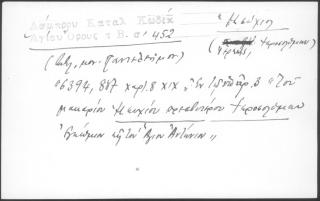 Λάμπρου Καταλ Κωδίκ
Ἁγίου Ὄρους τ Β. σ' 452
Ἡσύχιος
Ἱεροσολύμων)
(Βιβλ. μον. Παντελεήμονος)
"6394, 887 χαρτ. 8 XIX "Ἐν 3 "Τοῦ
μακαρίου Ἡσυχίου πρεσβυτέρου Ἱεροσολύμων
Ἐγκώμιον εἰς τὸν Ἅγιον Ἀντώνιον"